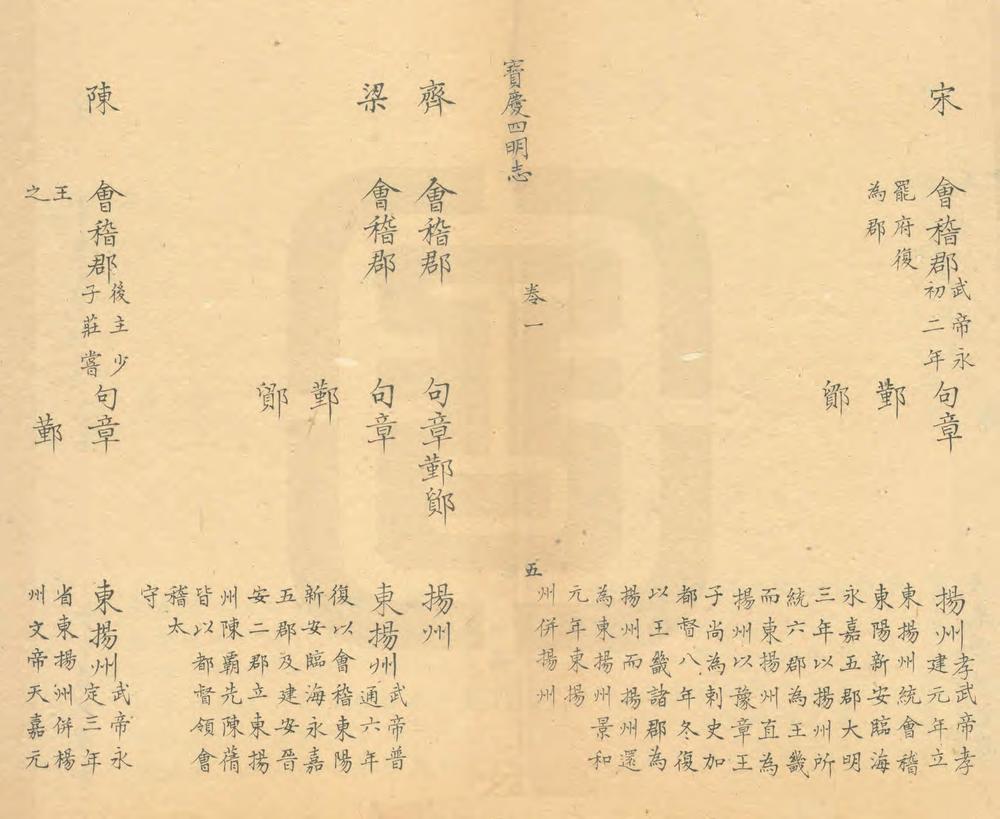 宋
會稽郡
武帝永
初二年
罷府復
為郡
句章
鄞
鄮
揚州
孝武帝孝
建元年立
東揚州統會稽
東陽新安臨海
永嘉五郡大明
三年以揚州所
統六郡為王畿
而東揚州直為
揚州以豫章王
子尚為刺史加
都督八年冬復
以王畿諸郡為
揚州而揚州還
為東揚州景和
元年東揚
州併揚州
寶慶四明志
卷一
五
齊
會稽郡
句章鄞鄮
揚州
梁
會稽郡
句章
鄞
鄮
東揚州
武帝普
通六年
復以會稽東陽
新安臨海永嘉
五郡及建安晉
安二郡立東揚
州陳霸先陳蒨
皆以都督領會
稽太
守
陳
會稽郡
後主少
子莊嘗
王
之
句章
鄞
東揚州
武帝永
定三年
省東揚州併楊
州文帝天嘉元